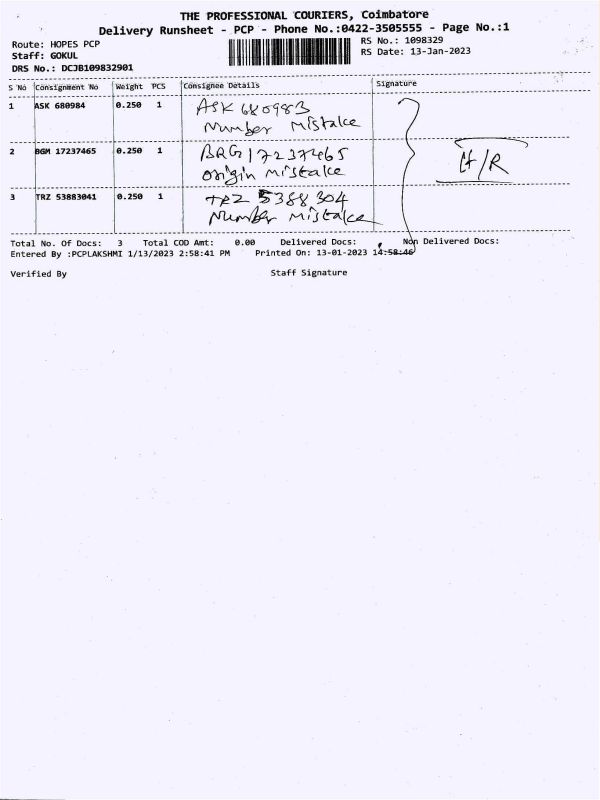 THE PROFESSIONAL COURIERS, Coimbatore
Delivery Runsheet - PCP - Phone No.:0422-3505555 - Page No.:1
Route: HOPES PCP
Staff: GOKUL
DRS No.: DCJB109832901
RS No.: 1098329
RS Date: 13-Jan-2023
S No Consignment No Weight PCS Consignee Details Signature
1 ASK 680984 0.250 1 ASK 680983
Number Mistake
2 BGM 17237465 0.250 1 BRG 17237465
origin mistake
H/R
3 TRZ 53883041 0.250 1 TRZ 5388304
Number Mistake
Total No. Of Docs: 3 Total COD Amt: 0.00 Delivered Docs: Non Delivered Docs:
Entered By :PCPLAKSHMI 1/13/2023 2:58:41 PM Printed On: 13-01-2023 14:58:46
Verified By Staff Signature